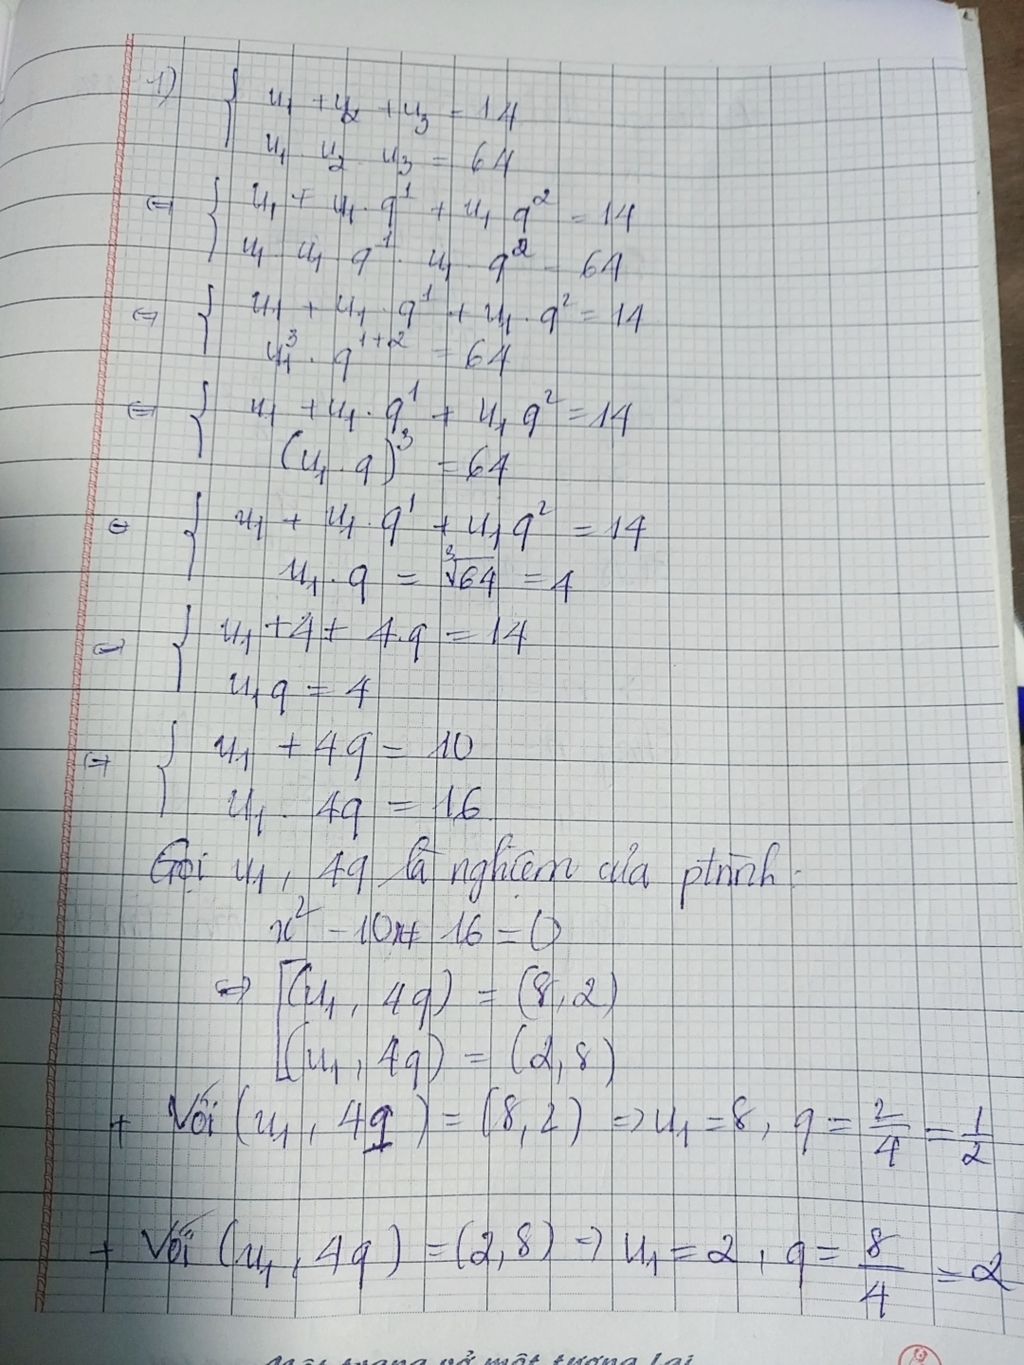 1) { u₁ + u₂ + u₃ = 14
u₁ u₂ u₃ = 64
⇔ { u₁ + u₁ . q¹ + u₁ q² = 14
u₁ . u₁ q¹ . u₁ . q² = 64
⇔ { u₁ + u₁ . q¹ + u₁ . q² = 14
u₁³ . q¹⁺² = 64
⇔ { u₁ + u₁ . q¹ + u₁ q² = 14
(u₁ . q)³ = 64
⇔ { u₁ + u₁ . q¹ + u₁ q² = 14
u₁ . q = ³√64 = 4
⇔ { u₁ + 4 + 4.q = 14
u₁ q = 4
⇔ { u₁ + 4q = 10
u₁ . 4q = 16
Gọi u₁, 4q là nghiệm của ptrình :
x² - 10x + 16 = 0
⇒ [ (u₁, 4q) = (8, 2)
(u₁, 4q) = (2, 8)
+ Với (u₁, 4q) = (8, 2) ⇒ u₁ = 8, q = 2/4 = 1/2
+ Với (u₁, 4q) = (2, 8) ⇒ u₁ = 2, q = 8/4 = 2